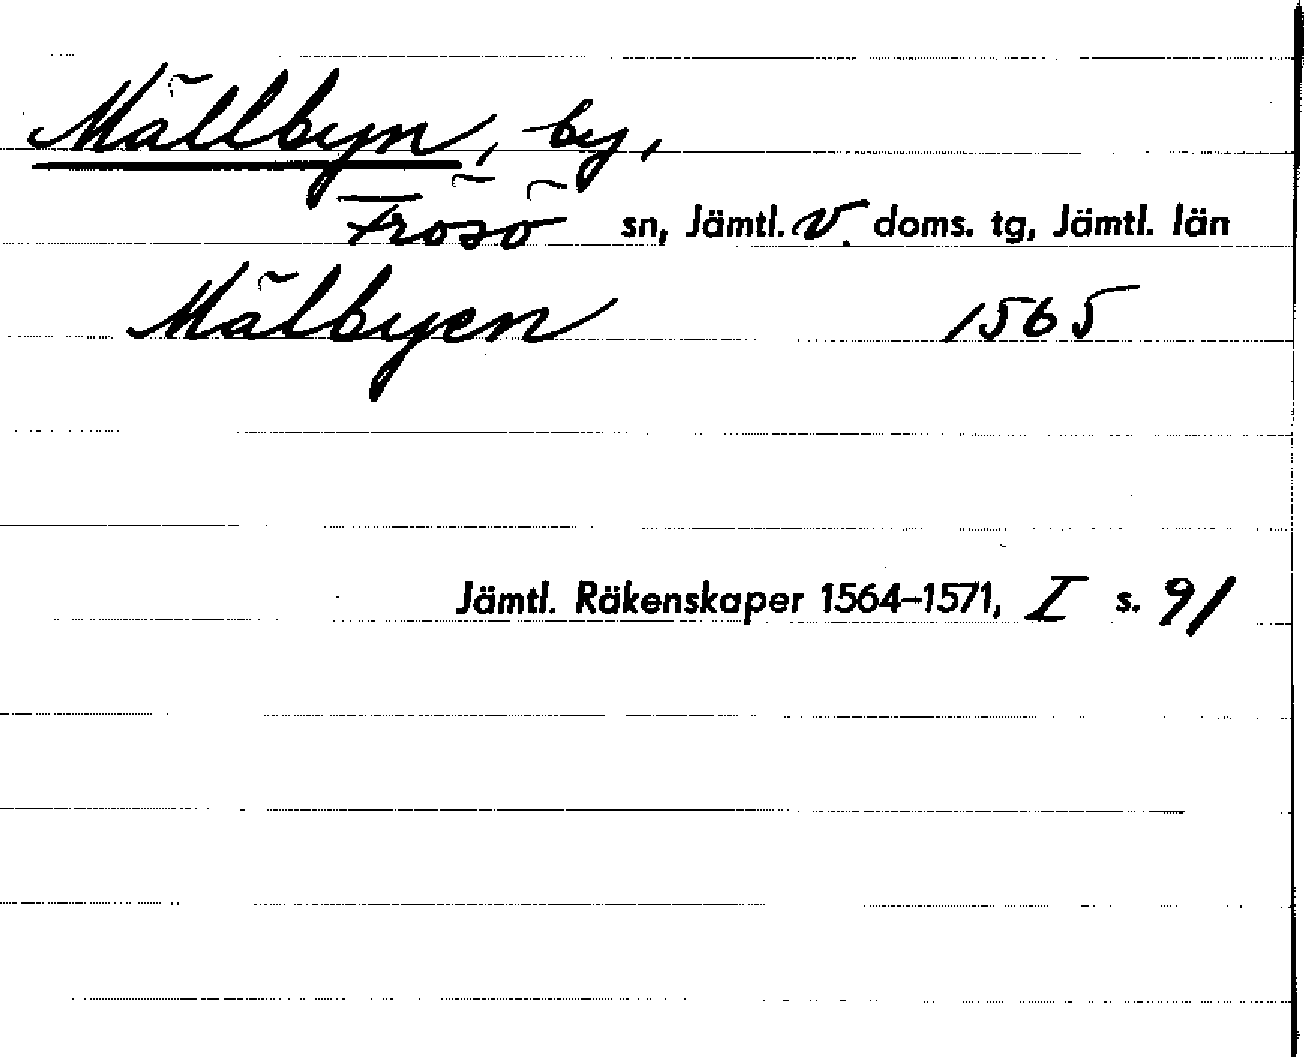 Mällbyn, by,
Frösö sn, Jämtl. v. doms. tg, Jämtl. län
Mälbyen 1565
Jämtl. Räkenskaper 1564–1571, I s. 91